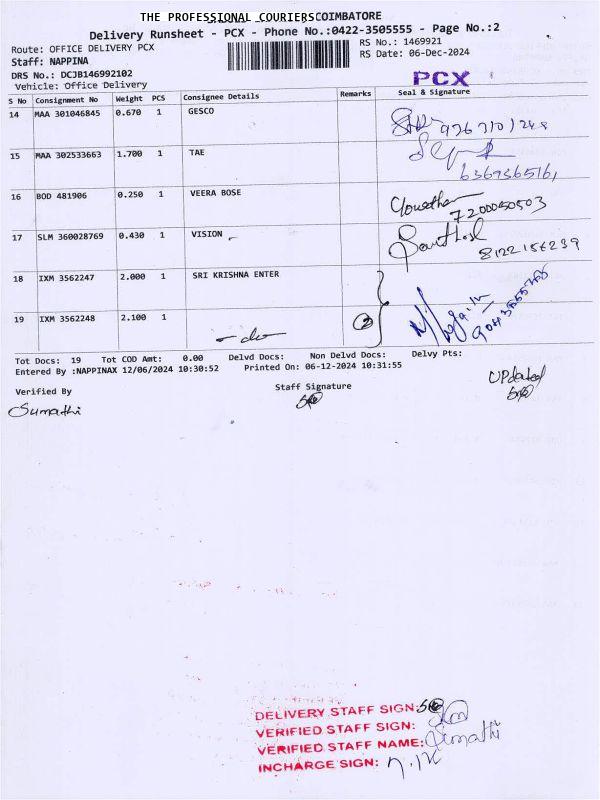 THE PROFESSIONAL COURIERSCOIMBATORE
Delivery Runsheet - PCX - Phone No.:0422-3505555 - Page No.:2
Route: OFFICE DELIVERY PCX
RS No.: 1469921
Staff: NAPPINA
RS Date: 06-Dec-2024
DRS No.: DCJB146992102
Vehicle: Office Delivery
PCX
S No Consignment No Weight PCS Consignee Details Remarks Seal & Signature
14 MAA 301046845 0.670 1 GESCO
15 MAA 302533663 1.700 1 TAE
16 BOD 481906 0.250 1 VEERA BOSE
7200050503
17 SLM 360028769 0.430 1 VISION
8122156239
18 IXM 3562247 2.000 1 SRI KRISHNA ENTER
19 IXM 3562248 2.100 1 - do - 2
Tot Docs: 19 Tot COD Amt: 0.00 Delvd Docs: Non Delvd Docs: Delvy Pts:
Entered By :NAPPINAX 12/06/2024 10:30:52 Printed On: 06-12-2024 10:31:55
Verified By Staff Signature UPdated
Sumathi
DELIVERY STAFF SIGN:
VERIFIED STAFF SIGN:
VERIFIED STAFF NAME: Sumathi
INCHARGE SIGN: